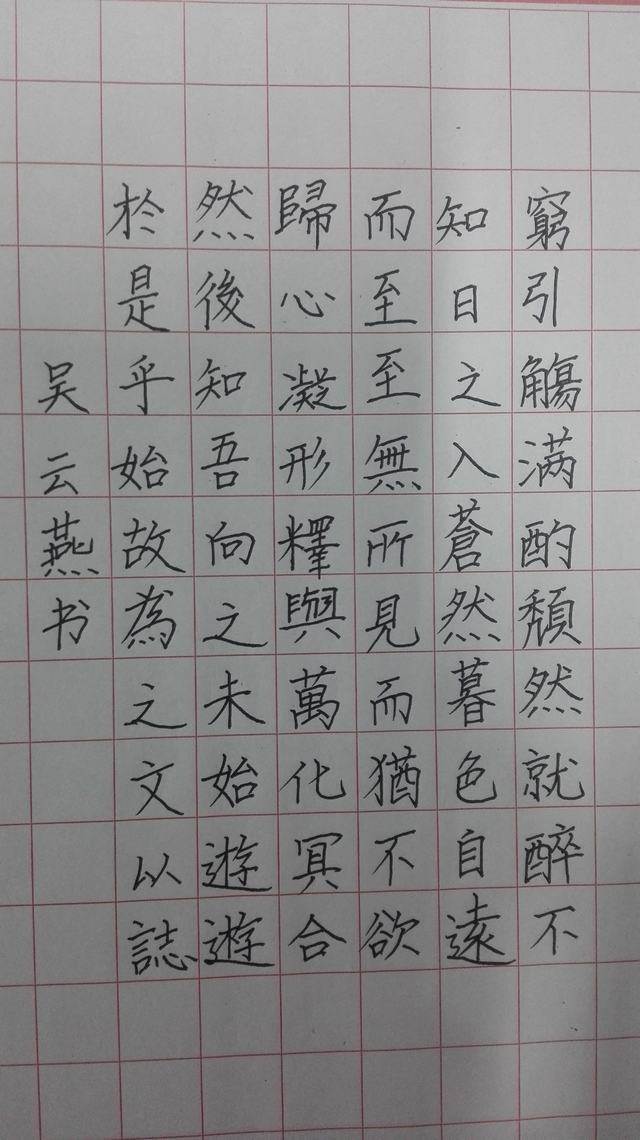 窮引觴满酌頹然就醉不
知日之入蒼然暮色自遠
而至至無所見而猶不欲
歸心凝形釋與萬化冥合
然後知吾向之未始遊遊
於是乎始故為之文以誌
吴云燕书